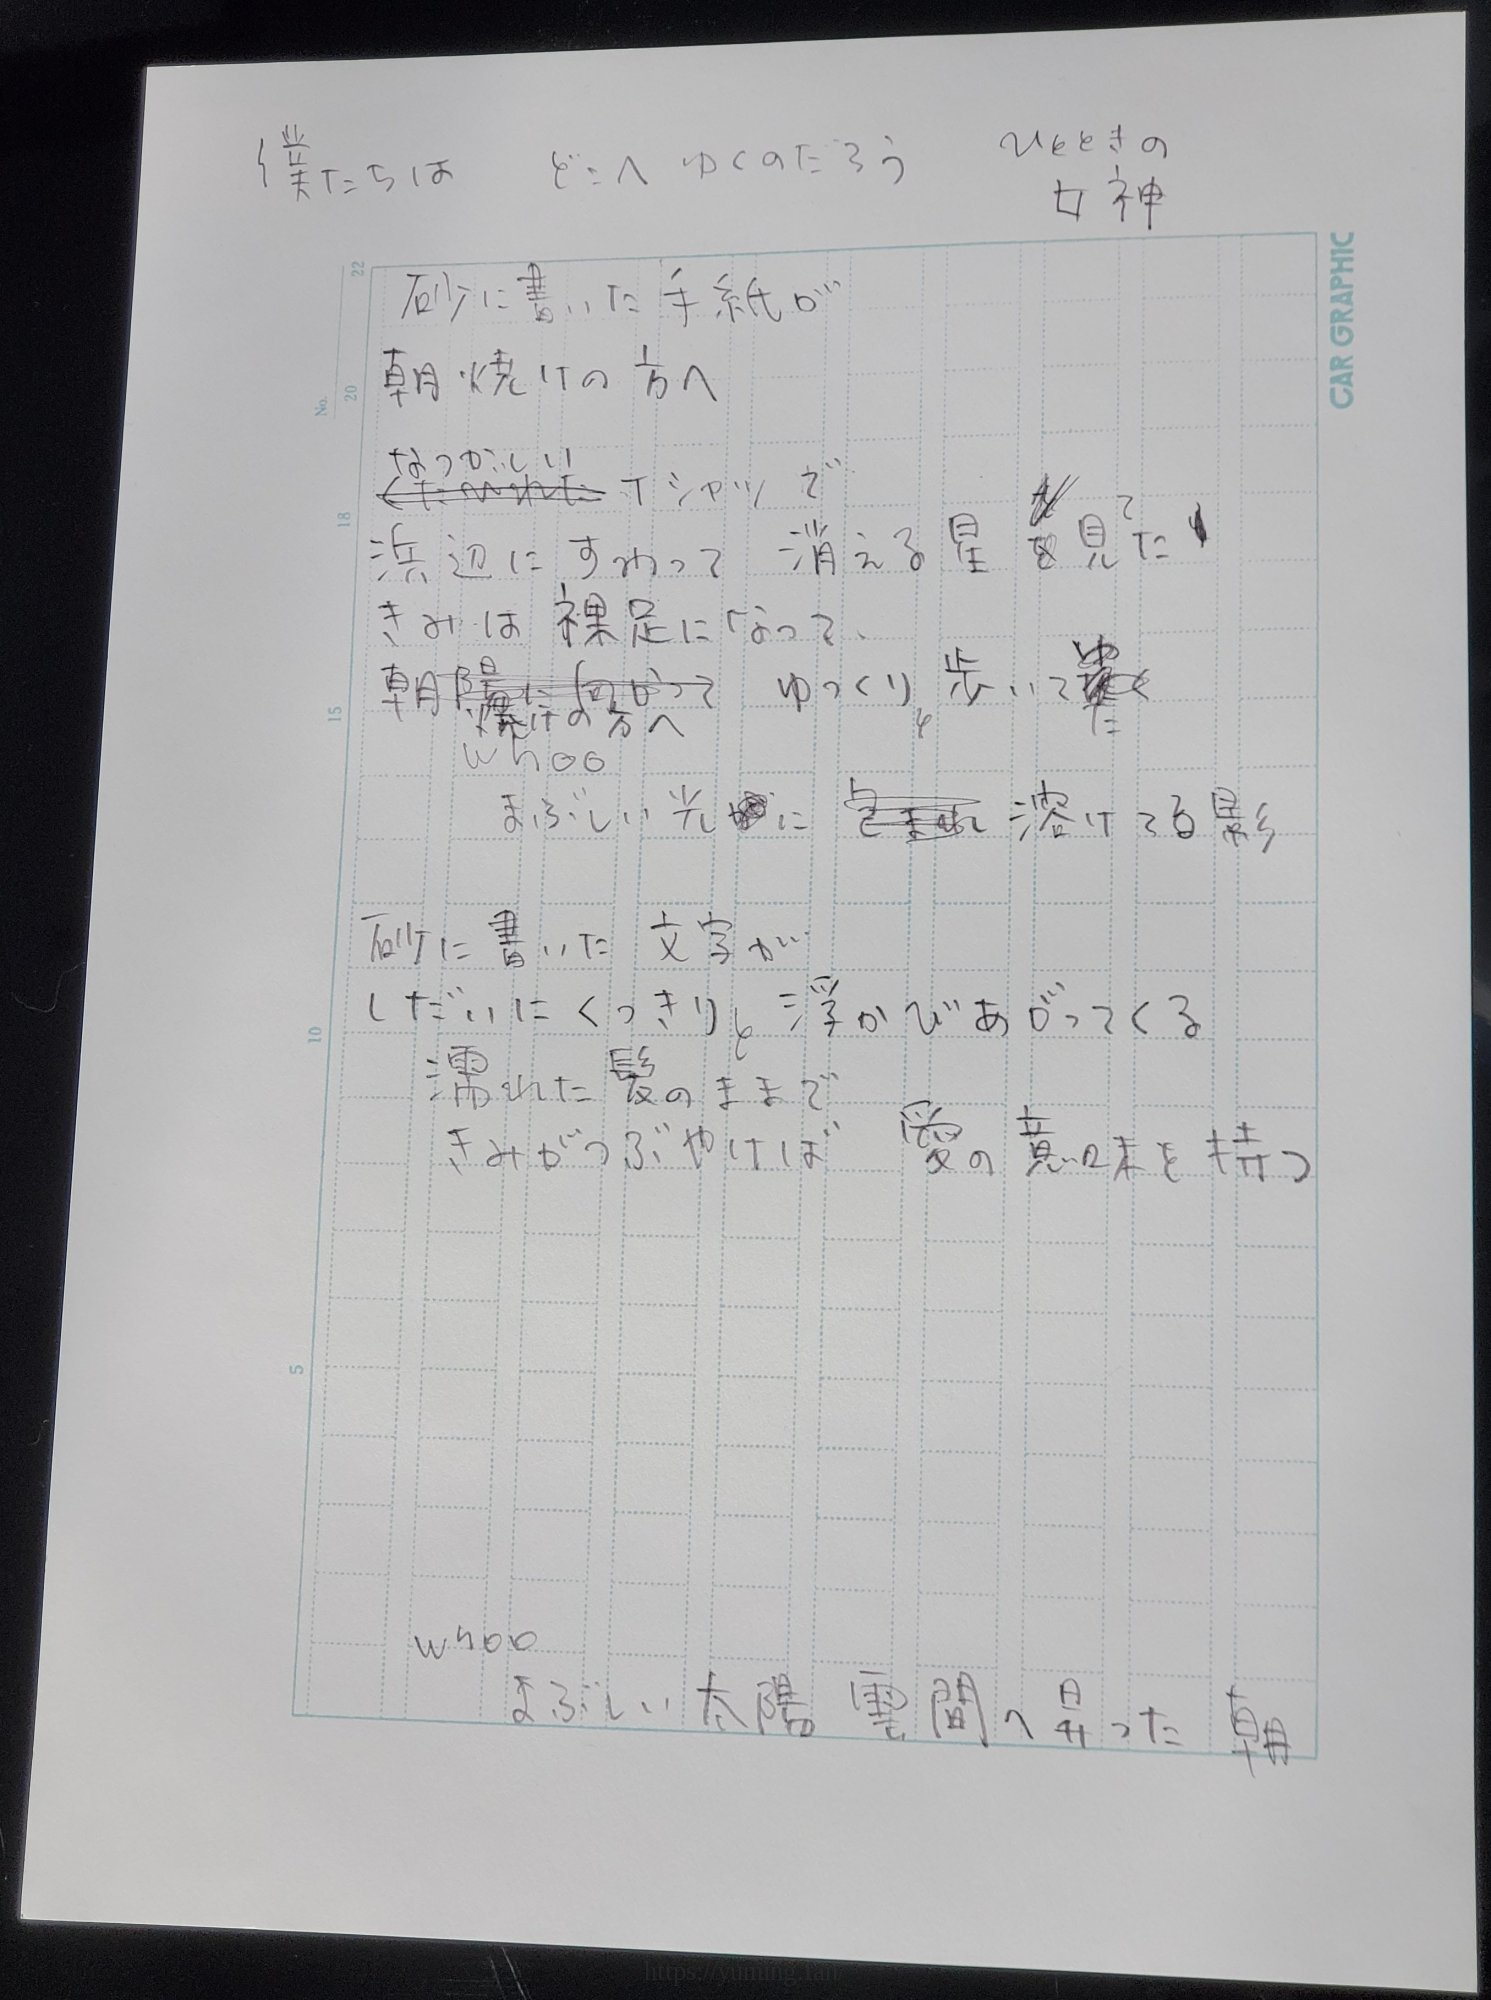 僕たちは どこへ ゆくのだろう ひとときの
女神
CAR GRAPHIC
No.
22
20
18
15
10
5
砂に書いた手紙が
朝焼けの方へ
なつかしい
くたびれた Tシャツで
浜辺にすわって 消える星を見てた
きみは裸足になって、
朝陽に向かって ゆっくりと歩いてゆく
焼けの方へ た
whoo
まぶしい光に 包まれ 溶けてる影
砂に書いた 文字が
しだいにくっきりと浮かびあがってくる
濡れた髪のままで
きみがつぶやけば 愛の意味を持つ
whoo
まぶしい太陽 雲間へ昇った 朝
https://yuming.fan/